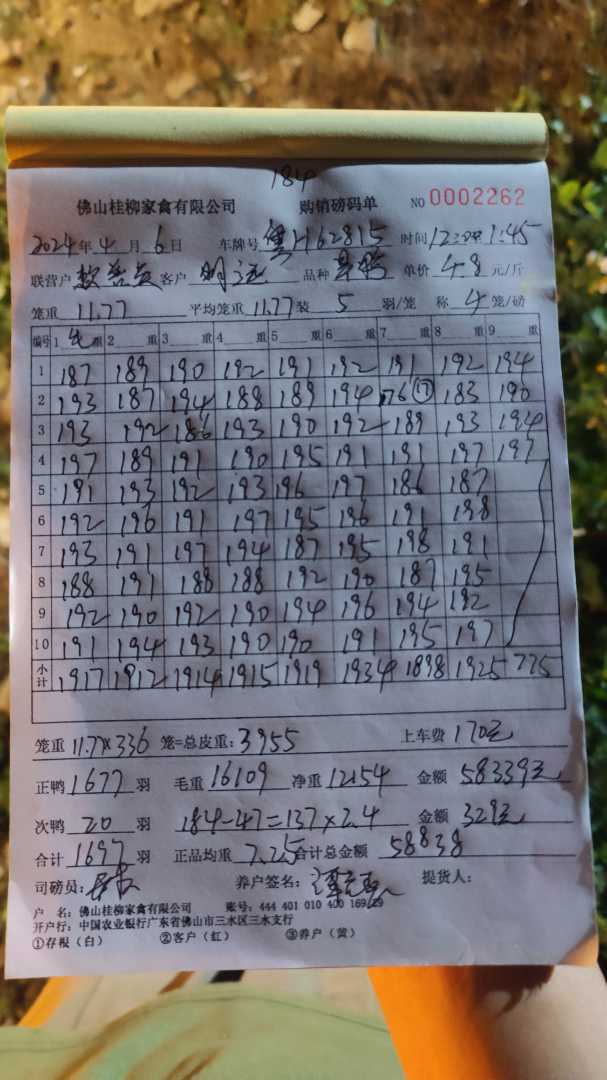 184
佛山桂柳家禽有限公司 购销磅码单 NO 0002262
2024年 4月 6日 车牌号 粤H62815 时间 1:45
联营户 客户 明运 品种 单价 4.8 元/斤
笼重 11.77 平均笼重 11.77 装 5 羽/笼 称 4 笼/磅
编号 1 毛重 2 重 3 重 4 重 5 重 6 重 7 重 8 重 9 重
1 187 189 190 192 191 192 191 192 194
2 193 187 194 188 189 194 176 ⑰ 183 190
3 193 192 186 193 190 192 189 193 194
4 197 189 191 190 195 191 191 197 197
5 191 193 192 193 196 197 186 187
6 192 196 191 197 195 196 191 198
7 193 191 197 194 187 195 198 191
8 188 191 188 188 192 190 187 195
9 192 190 192 190 194 196 194 192
10 191 194 193 190 190 191 195 197
小计 1917 1912 1914 1915 1919 1934 1898 1925 775
笼重 11.77×336 笼=总皮重: 3955 上车费 170元
正鸭 1677 羽 毛重 16109 净重 12154 金额 58339元
次鸭 20 羽 184-47=137×2.4 金额 329元
合计 1697 羽 正品均重 7.25 合计总金额 58838
司磅员: 养户签名: 提货人:
户 名: 佛山桂柳家禽有限公司 账号: 444 401 010 400 169 29
开户行: 中国农业银行广东省佛山市三水区三水支行
①存根（白） ②客户（红） ③养户（黄）